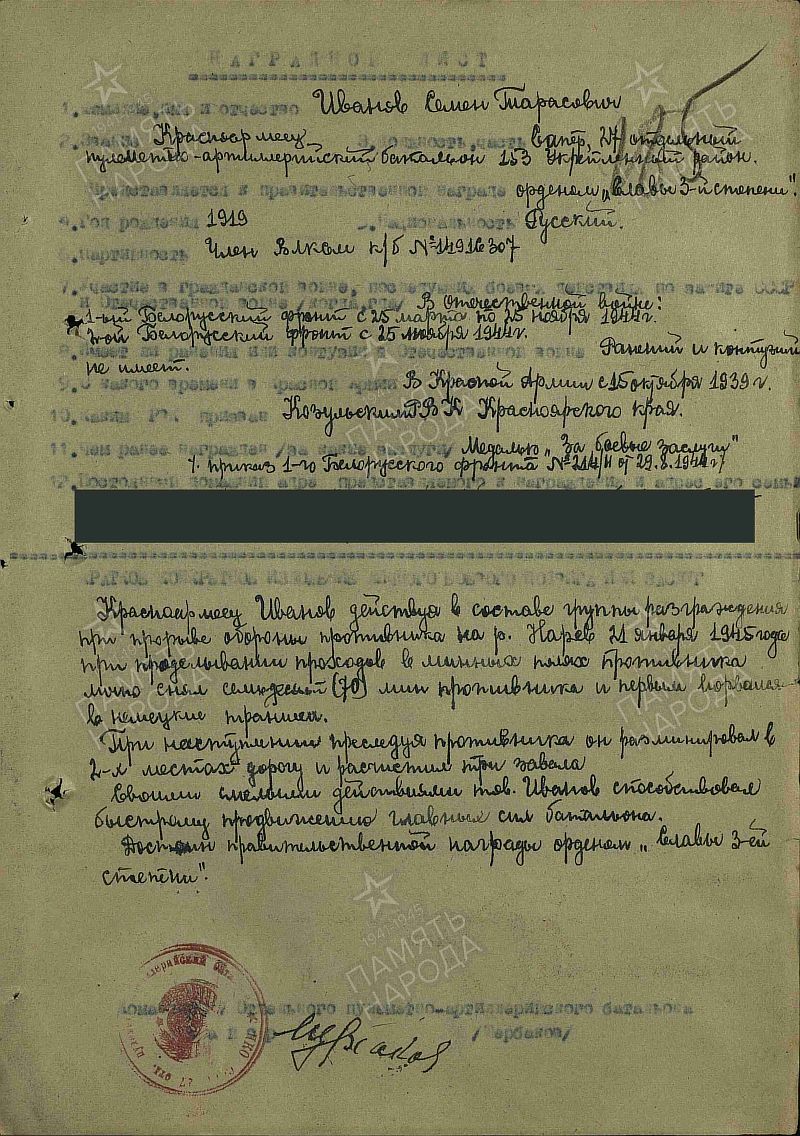 НАГРАДНОЙ ЛИСТ
1. Фамилия, имя и отчество Иванов Семен Тарасович
2. Звание Красноармеец 3. Должность, часть Сапер, 27 отдельный
пулеметно-артиллерийский батальон 153 Укрепленный район.
Представляется к правительственной награде орденом „Славы 3-й степени".
4. Год рождения 1919 5. Национальность Русский.
6. Партийность Член ВЛКСМ к/б №14916307
7. Участие в гражданской войне, последующих боевых действиях по защите СССР
и Отечественной войне /когда, где/ В Отечественной войне:
1-ый Белорусский фронт с 25 марта по 25 ноября 1944 г.
2-ой Белорусский фронт с 25 ноября 1944 г.
8. Имеет ли ранения или контузии в Отечественной войне Ранений и контузий
не имеет.
9. С какого времени в Красной Армии В Красной Армии с 15 октября 1939 г.
10. Каким РВК призван Козульским РВК Красноярского края.
11. Чем ранее награжден /за какие заслуги/ Медалью „За боевые заслуги"
/приказ 1-го Белорусского фронта №214/н от 29.8.1944 г/
12. Постоянный домашний адрес представляемого к награждению и адрес его семьи
КРАТКОЕ КОНКРЕТНОЕ ИЗЛОЖЕНИЕ ЛИЧНОГО БОЕВОГО ПОДВИГА ИЛИ ЗАСЛУГ
Красноармеец Иванов действуя в составе группы разграждения
при прорыве обороны противника на р. Нарев 21 января 1945 года
при проделывании проходов в минных полях противника
лично снял семьдесят (70) мин противника и первым ворвался
в немецкие траншеи.
При наступлении преследуя противника он разминировал в
2-х местах дорогу и расчистил три завала
Своими смелыми действиями тов. Иванов способствовал
быстрому продвижению главных сил батальона.
Достоин правительственной награды орденом „Славы 3-ей
степени".
Отдельного пулеметно-артиллерийского батальона
/Щербаков/
ПАМЯТЬ НАРОДА
1941-1945